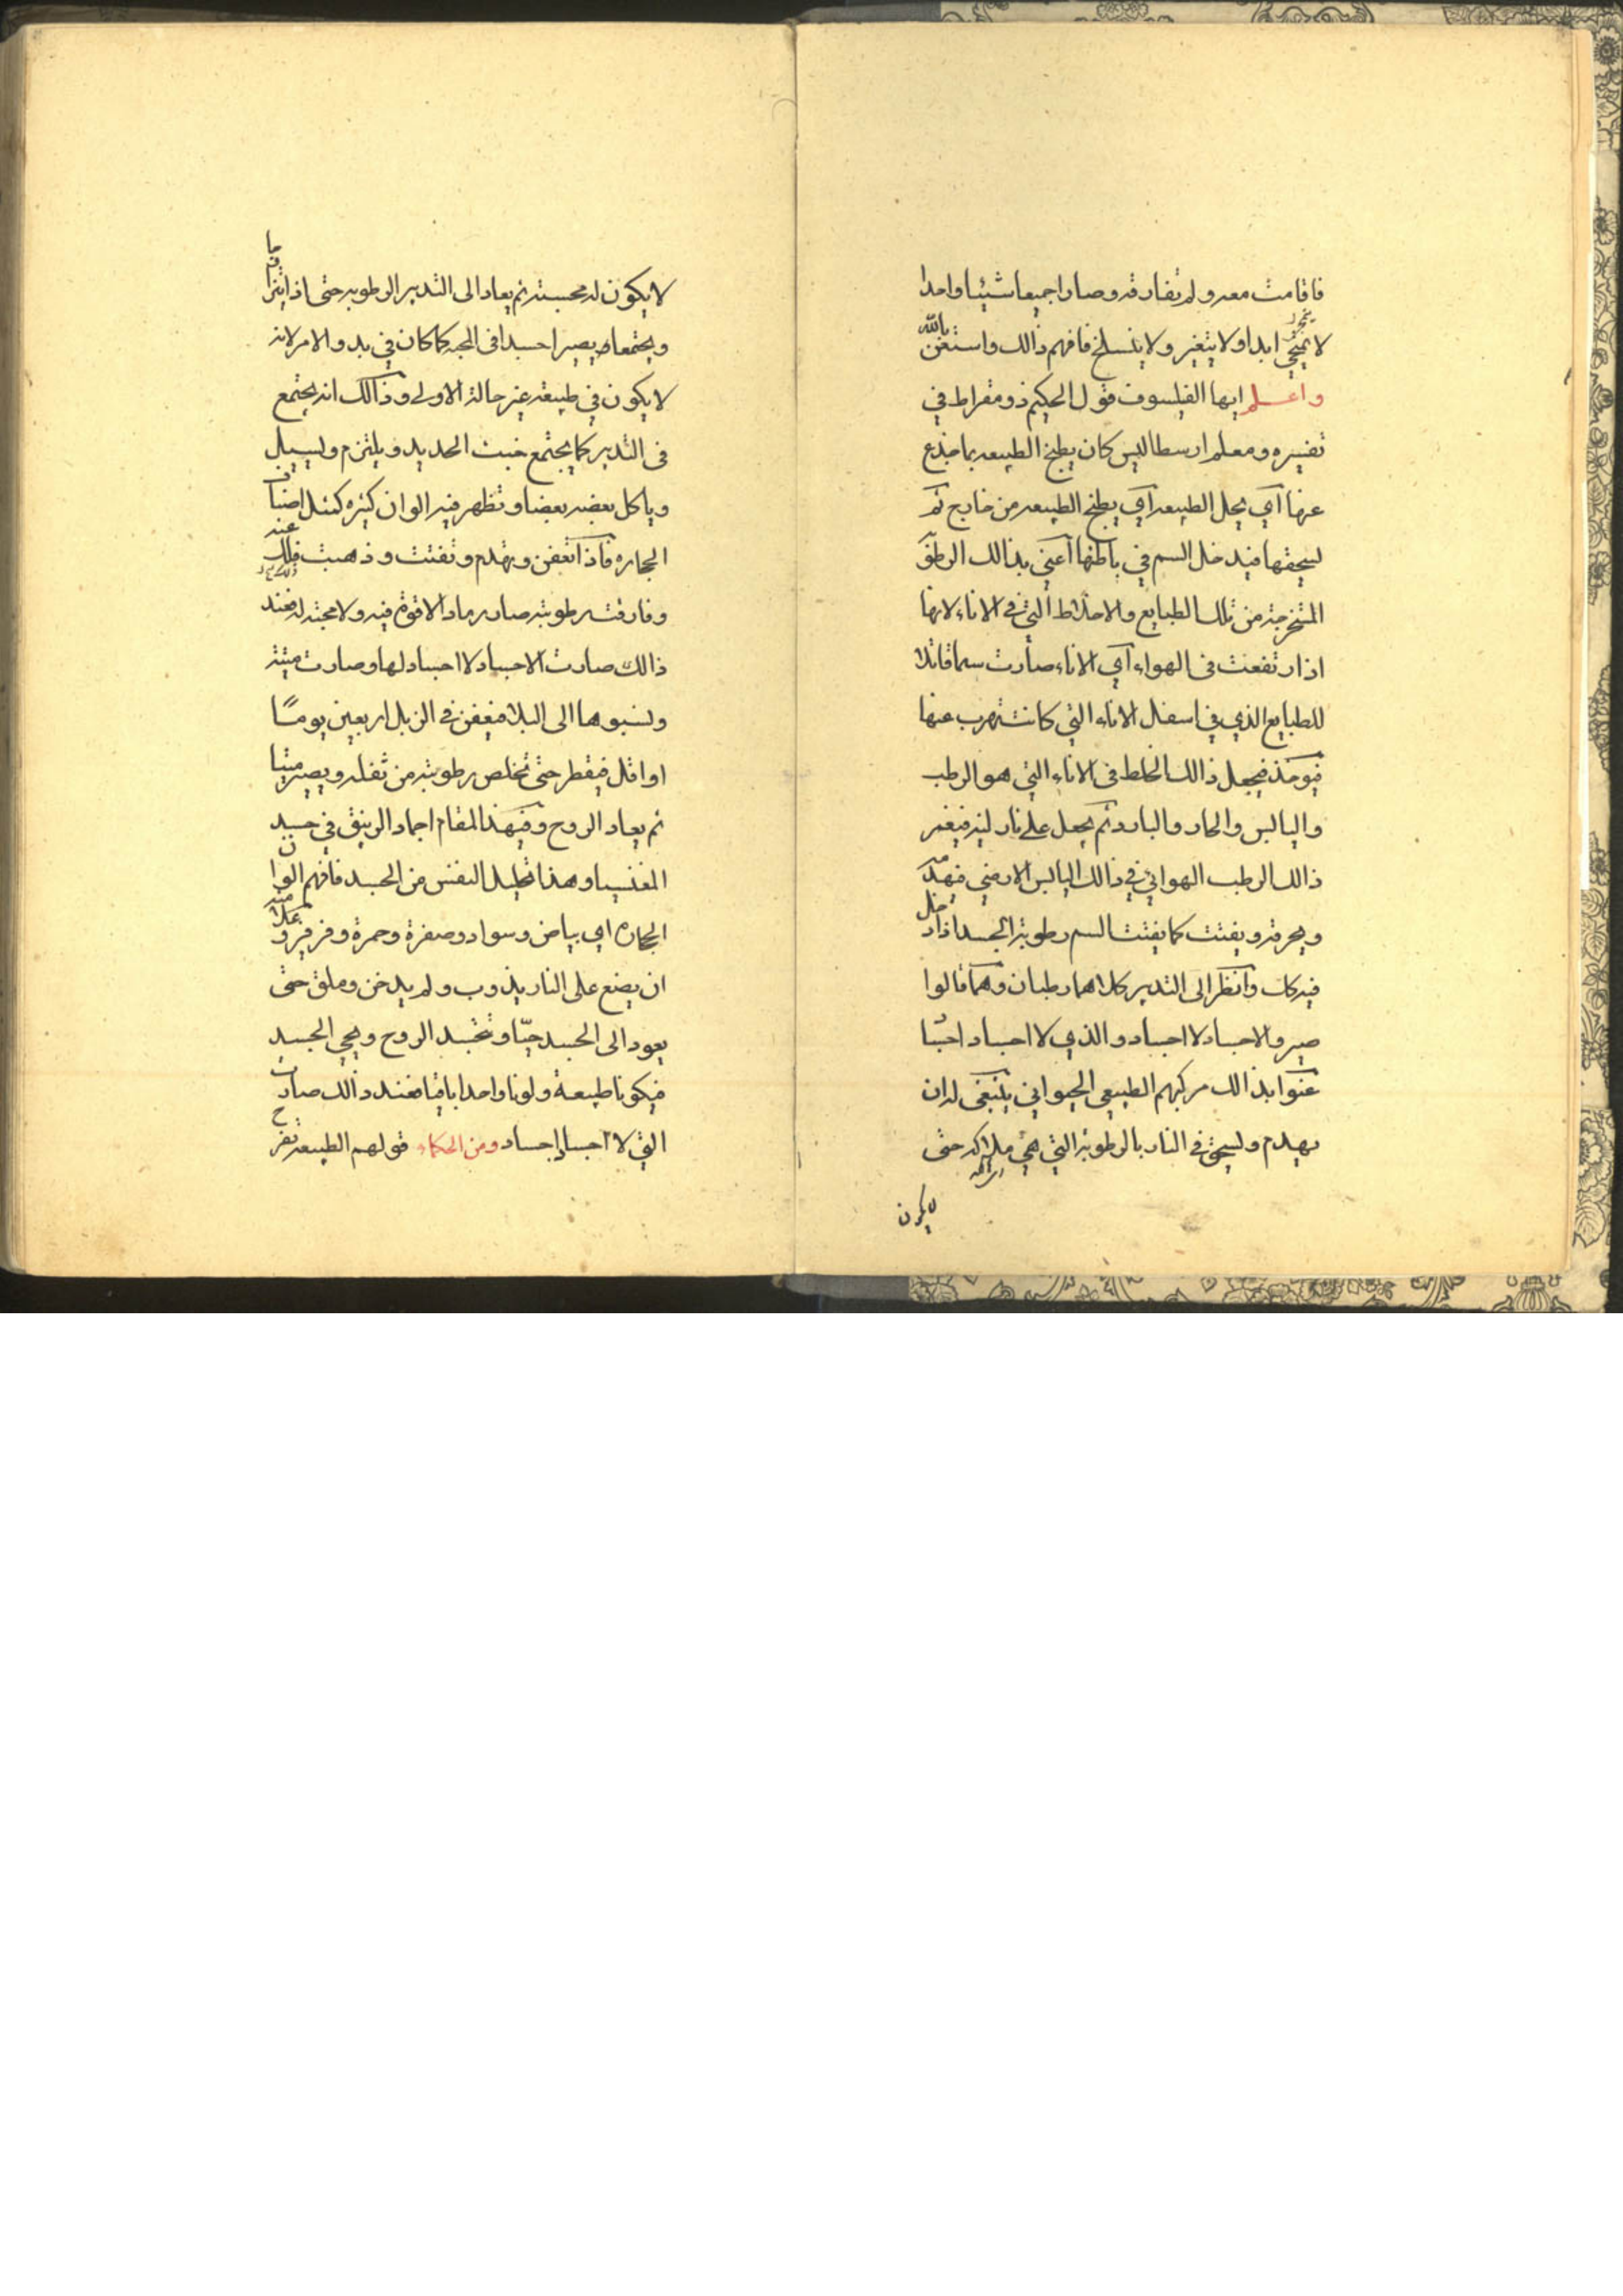 فاقامت معه ولم تفارقه وصارا جميعا شيئا واحدا
لا ابدا ولا يتغير ولا ينسلخ فافهم ذالك واستعن بالله
واعلم ايها الفيلسوف قول الحكيم ذومقراط في
تفسيره ومعلم ارسطاليس كان يطبخ الطبيعه بما خذع
عنها اي يحل الطبيعه اي يطبخ الطبيعه من خارج ثم
ليسحقها فيدخل السم في باطنها اعني بذالك الرطوبة
من تلك الطبايع والاخلاط التي في الاناء لانها
اذا رتفعت في الهواء اي الاناء صارت سما قاتلا
للطبايع الذي في اسفل الاناء التي كانت تهرب عنها
فيوخذ فيجعل ذالك الخلط في الاناء التي هو الرطب
واليابس والحار والبارد ثم يجعل على نار لينه فيغمر
ذالك الرطب الهوائي في ذالك اليابس الارضي فيهدمه
ويحرقه ويفتت كما يفتت السم رطوبة الجسد اذا دخل
فيه وانظر الى التدبير كلاهما رطبان وهما قالوا
صيروا الاجساد لا اجساد والذي لا اجساد اجسادا
عنوا بذالك مركبهم الطبيعي الحيواني ينبغي له ان
يهدم وليسحق في النار بالرطوبة التي هي حتى
لا يكون
لا يكون له مجسته ثم يعاد الى التدبير الرطوبه حتى اذا
ويجتمعا ويصير احسدا في المجسه كما كان في بدو الامر لانه
لا يكون في طبيعته غير حالة الاولى وذالك انه يجتمع
في التدبير كما يجتمع خبث الحديد ويلتزم وليسيل
وياكل بعضه بعضا وتظهر فيه الوان كثيره كمثل اصناف
الحجاره فاذا تعفن وتهدم وتفتت وذهبت عنه
وفارقته رطوبته صار رمادا لا قوة فيه ولا مجسة له فعند
ذالك صارت الاجساد لا اجساد لها وصارت ميتة
ولنسبوها الى البلاء فيعفن في الزبل اربعين يوما
او اقل فيقطر حتى تخلص رطوبته من ثفله ويصير ميتا
ثم يعاد الروح وفي هذا المقام اجماد الزيبق في جسد
المغنيسيا وهذا تحليل النفس من الجسد فافهم الوان
الحجاره اي بياض وسواد وصفرة وحمرة وفرفيرو علامته
ان يضع على النار يذوب ولم يدخن وملق حتى
يعود الى الجسد حيا وتجسد الروح ويحيي الجسد
فيكونا طبيعة ولونا واحدا باقيا فعند ذالك صارت
التي لا اجساد اجساد ومن الحكماء قولهم الطبيعه تفرح